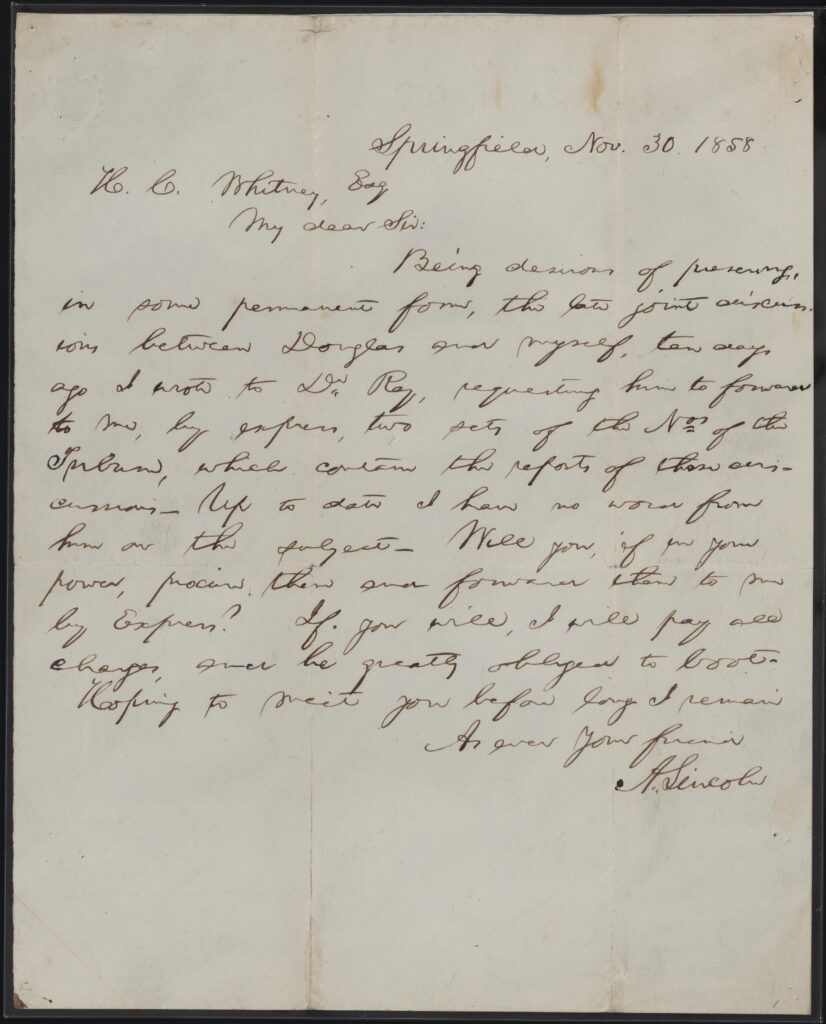 Springfield, Nov. 30. 1858
H. C. Whitney, Esq
My dear Sir:
Being desirous of preserving,
in some permanent form, the late joint discuss-
ions between Douglas and myself, ten days
ago I wrote to Dr. Ray, requesting him to forward
to me, by express, two sets of the Nos of the
Tribune, which contain the reports of those dis-
cussions— Up to date I have no word from
him on the subject— Will you, if in your
power, procure them and forward them to me
by Express? If you will, I will pay all
charges, and be greatly obliged to boot—
Hoping to meet you before long I remain
As ever your friend
A. Lincoln